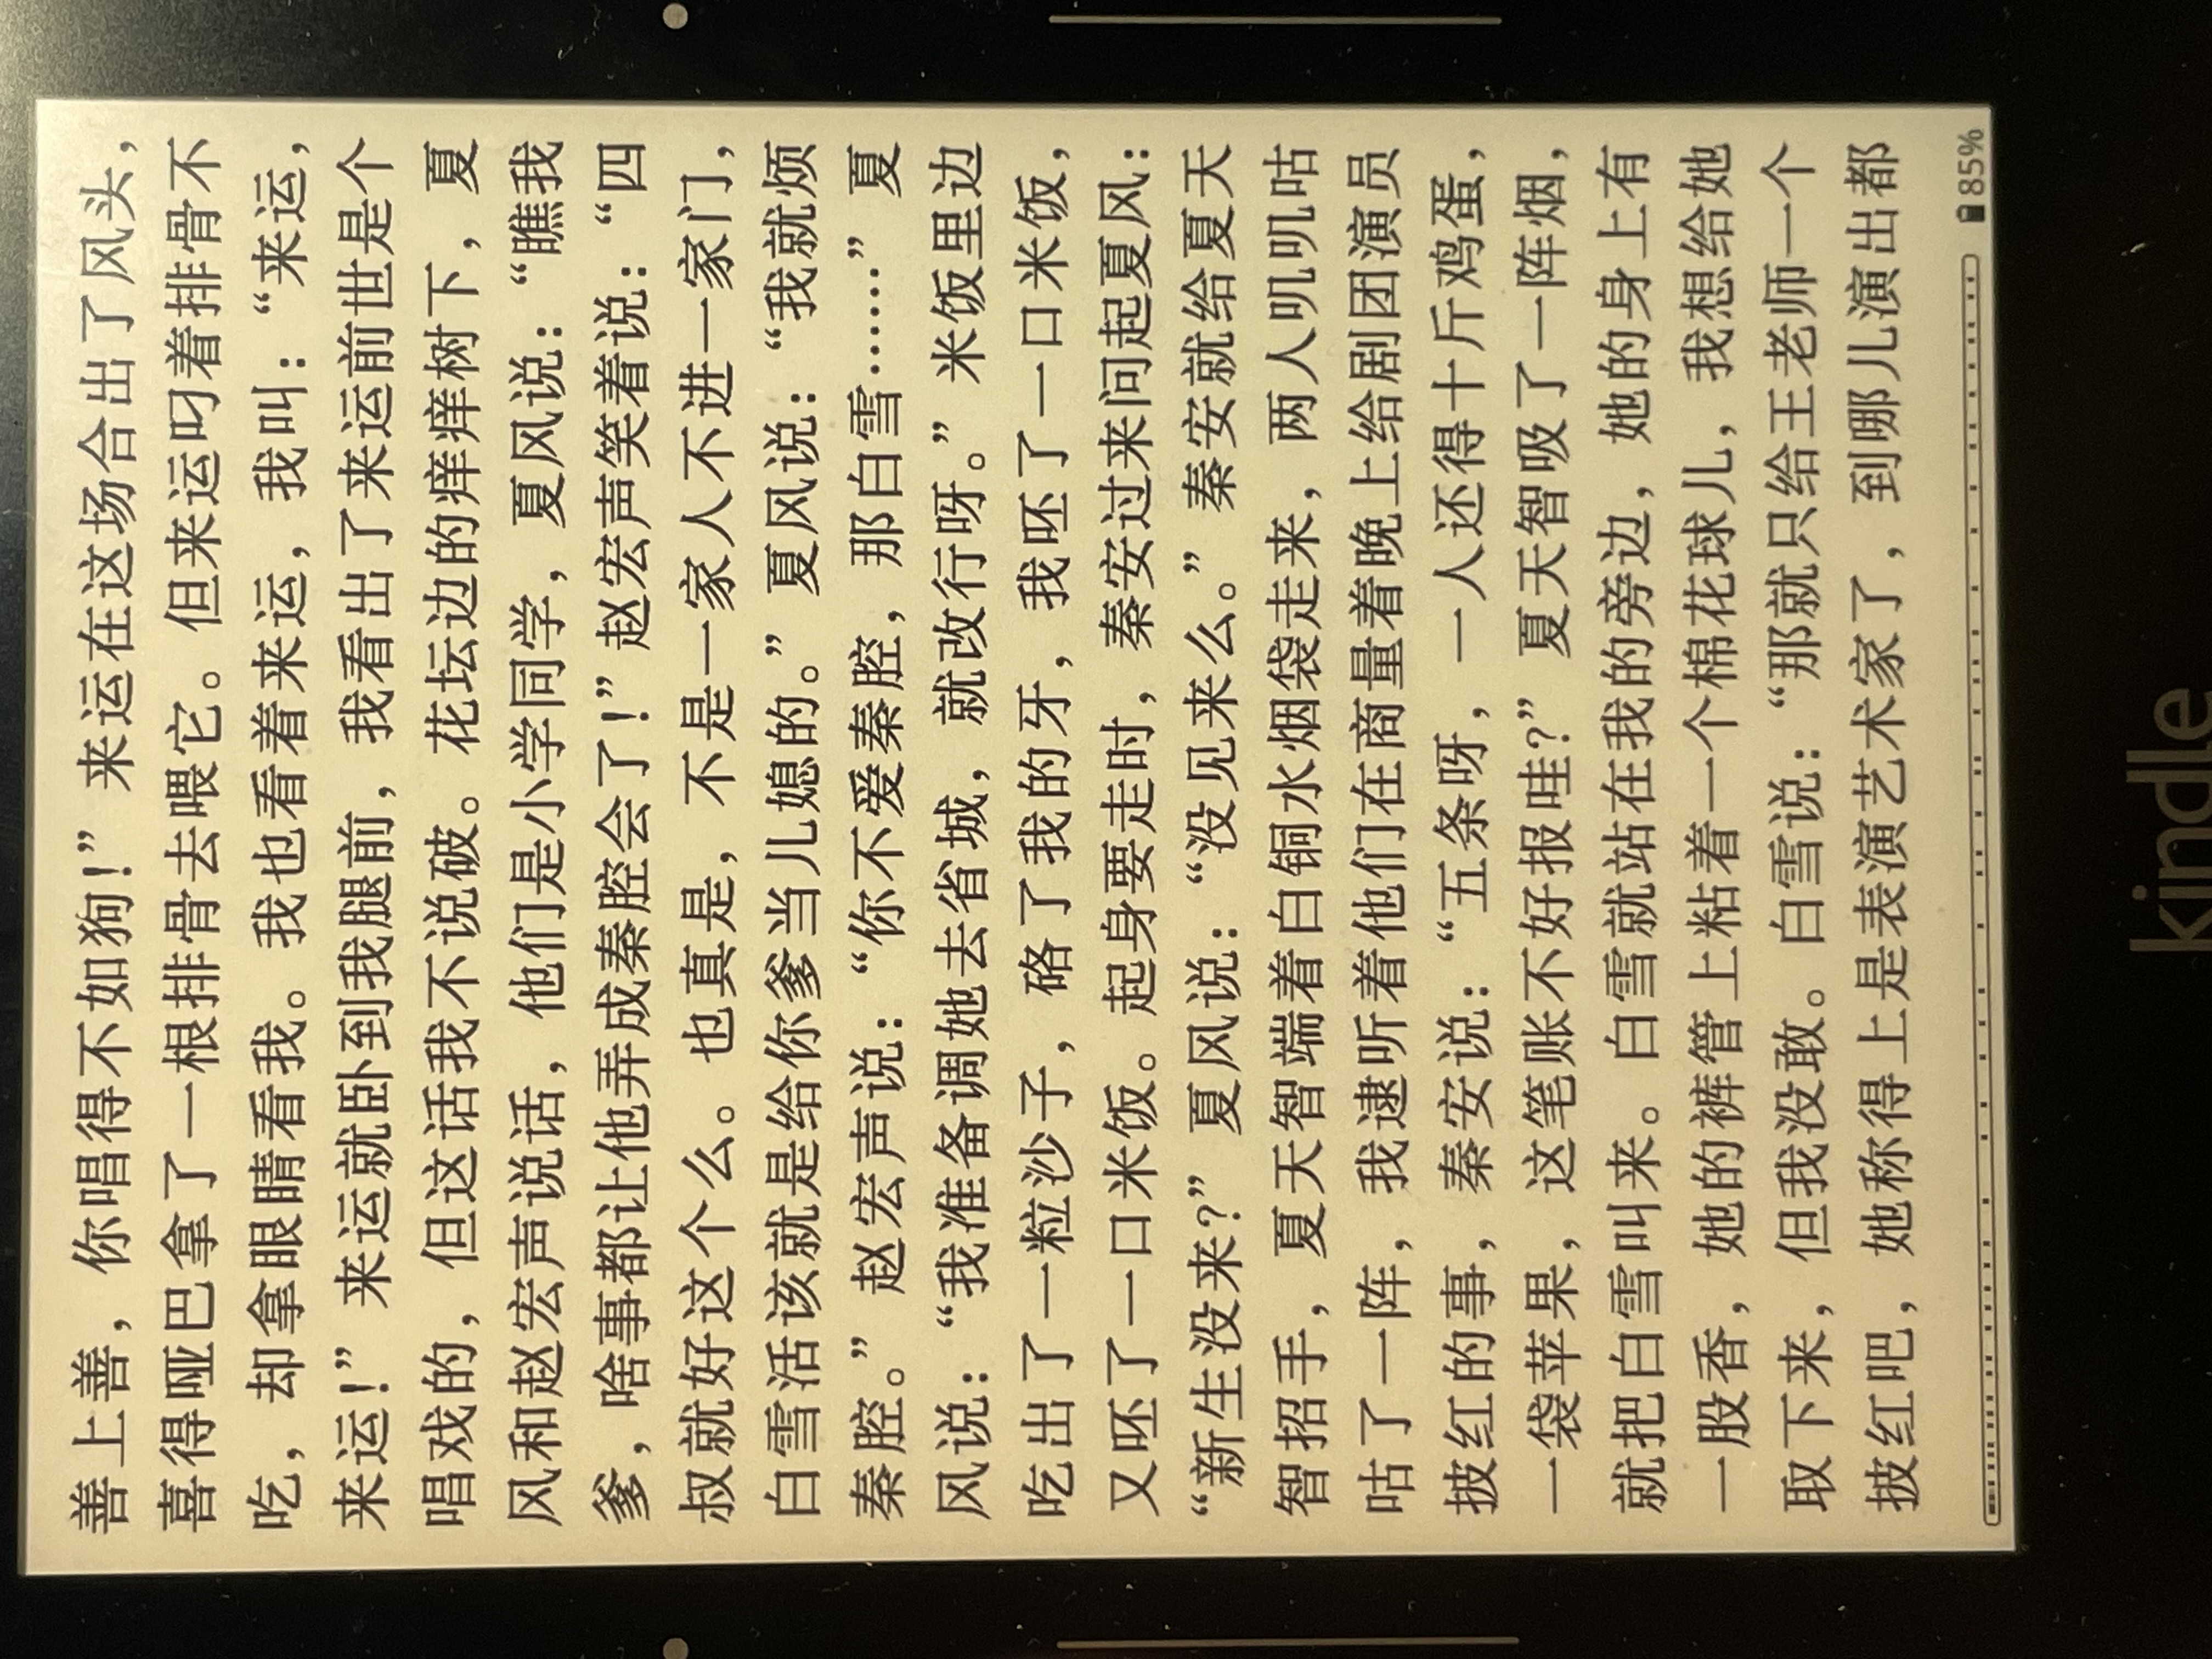 善上善，你唱得不如狗！”来运在这场合出了风头，
喜得哑巴拿了一根排骨去喂它。但来运叼着排骨不
吃，却拿眼睛看我。我也看着来运，我叫：“来运，
来运！”来运就卧到我腿前，我看出了来运前世是个
唱戏的，但这话我不说破。花坛边的痒痒树下，夏
风和赵宏声说话，他们是小学同学，夏风说：“瞧我
爹，啥事都让他弄成秦腔会了！”赵宏声笑着说：“四
叔就好这个么。也真是，不是一家人不进一家门，
白雪活该就是给你爹当儿媳的。”夏风说：“我就烦
秦腔。”赵宏声说：“你不爱秦腔，那白雪……”夏
风说：“我准备调她去省城，就改行呀。”米饭里边
吃出了一粒沙子，硌了我的牙，我呸了一口米饭，
又呸了一口米饭。起身要走时，秦安过来问起夏风：
“新生没来？”夏风说：“没见来么。”秦安就给夏天
智招手，夏天智端着白铜水烟袋走来，两人叽叽咕
咕了一阵，我逮听着他们在商量着晚上给剧团演员
披红的事，秦安说：“五条呀，一人还得十斤鸡蛋，
一袋苹果，这笔账不好报哇？”夏天智吸了一阵烟，
就把白雪叫来。白雪就站在我的旁边，她的身上有
一股香，她的裤管上粘着一个棉花球儿，我想给她
取下来，但我没敢。白雪说：“那就只给王老师一个
披红吧，她称得上是表演艺术家了，到哪儿演出都
85%
kindle